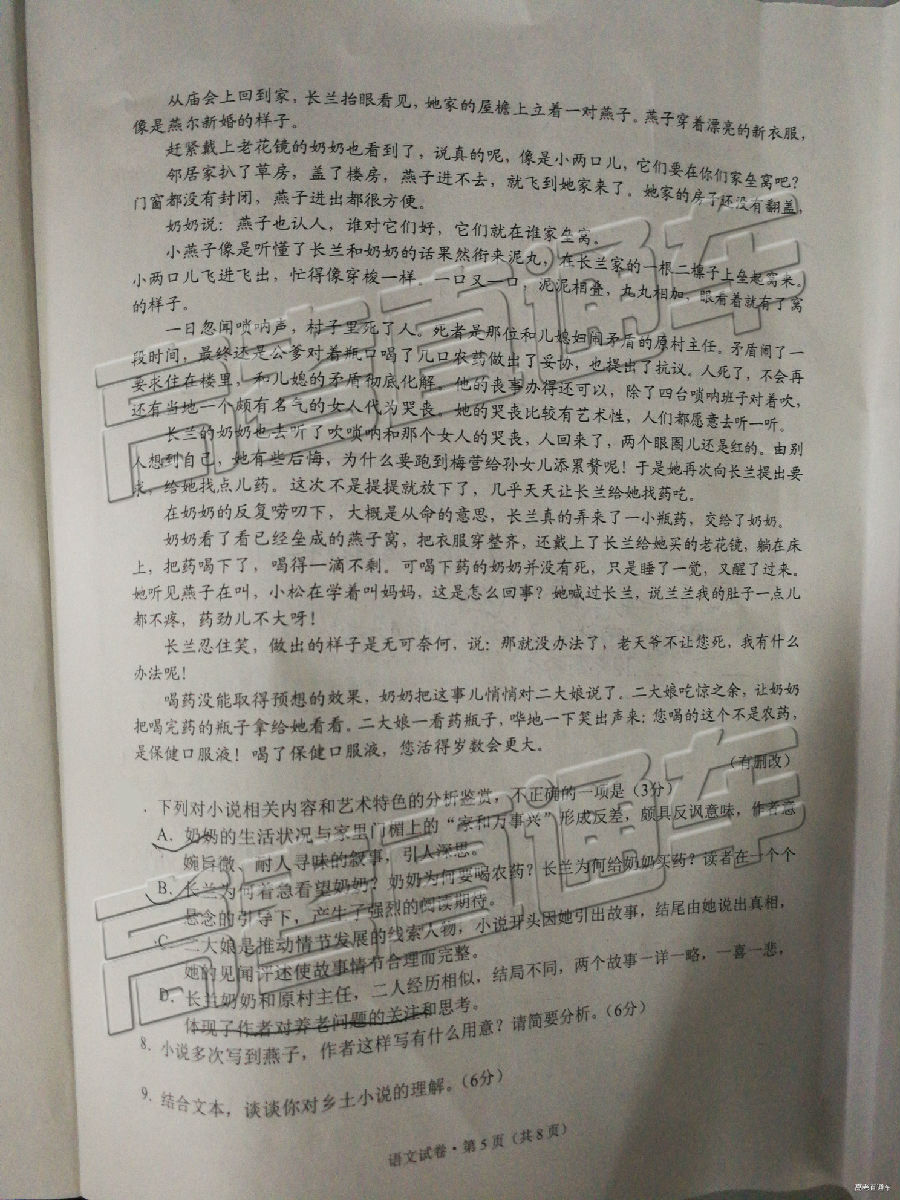 从庙会上回到家，长兰抬眼看见，她家的屋檐上立着一对燕子。燕子穿着漂亮的新衣服，
像是燕尔新婚的样子。
赶紧戴上老花镜的奶奶也看到了，说真的呢，像是小两口儿，它们要在你们家垒窝吧？
邻居家扒了草房，盖了楼房，燕子进不去，就飞到她家来了。她家的房子还没有翻盖，
门窗都没有封闭，燕子进出都很方便。
奶奶说：燕子也认人，谁对它们好，它们就在谁家垒窝。
小燕子像是听懂了长兰和奶奶的话果然衔来泥丸，在长兰家的一根二檩子上垒起窝来。
小两口儿飞进飞出，忙得像穿梭一样。一口又一口，泥泥相叠，丸丸相加，眼看着就有了窝
的样子。
一日忽闻唢呐声，村子里死了人。死者是那位和儿媳妇闹矛盾的原村主任。矛盾闹了一
段时间，最终还是公爹对着瓶口喝了几口农药做出了妥协，也提出了抗议。人死了，不会再
要求住在楼里，和儿媳的矛盾彻底化解。他的丧事办得还可以，除了四台唢呐班子对着吹，
还有当地一个颇有名气的女人代为哭丧。她的哭丧比较有艺术性，人们都愿意去听一听。
长兰的奶奶也去听了吹唢呐和那个女人的哭丧，人回来了，两个眼圈儿还是红的。由别
人想到自己，她有些后悔，为什么要跑到梅营给孙女儿添累赘呢！于是她再次向长兰提出要
求，给她找点儿药。这次不是提提就放下了，几乎天天让长兰给她找药吃。
在奶奶的反复唠叨下，大概是从命的意思，长兰真的弄来了一小瓶药，交给了奶奶。
奶奶看了看已经垒成的燕子窝，把衣服穿整齐，还戴上了长兰给她买的老花镜，躺在床
上，把药喝下了，喝得一滴不剩。可喝下药的奶奶并没有死，只是睡了一觉，又醒了过来。
她听见燕子在叫，小松在学着叫妈妈，这是怎么回事？她喊过长兰，说兰兰我的肚子一点儿
都不疼，药劲儿不大呀！
长兰忍住笑，做出的样子是无可奈何，说：那就没办法了，老天爷不让您死，我有什么
办法呢！
喝药没能取得预想的效果，奶奶把这事儿悄悄对二大娘说了。二大娘吃惊之余，让奶奶
把喝完药的瓶子拿给她看看。二大娘一看药瓶子，哗地一下笑出声来：您喝的这个不是农药，
是保健口服液！喝了保健口服液，您活得岁数会更大。
（有删改）
下列对小说相关内容和艺术特色的分析鉴赏，不正确的一项是（3分）
A．奶奶的生活状况与家里门楣上的“家和万事兴”形成反差，颇具反讽意味，作者意
婉旨微、耐人寻味的叙事，引人深思。
B．长兰为何着急看望奶奶？奶奶为何要喝农药？长兰为何给奶奶买药？读者在一个个
悬念的引导下，产生了强烈的阅读期待。
C 二大娘是推动情节发展的线索人物，小说开头因她引出故事，结尾由她说出真相，
她的见闻评述使故事情节合理而完整。
D．长兰奶奶和原村主任，二人经历相似，结局不同，两个故事一详一略，一喜一悲，
体现了作者对养老问题的关注和思考。
8．小说多次写到燕子，作者这样写有什么用意？请简要分析。（6分）
9．结合文本，谈谈你对乡土小说的理解。（6分）
语文试卷·第5页（共8页）
高考直通车
高考直通车
高考直通车